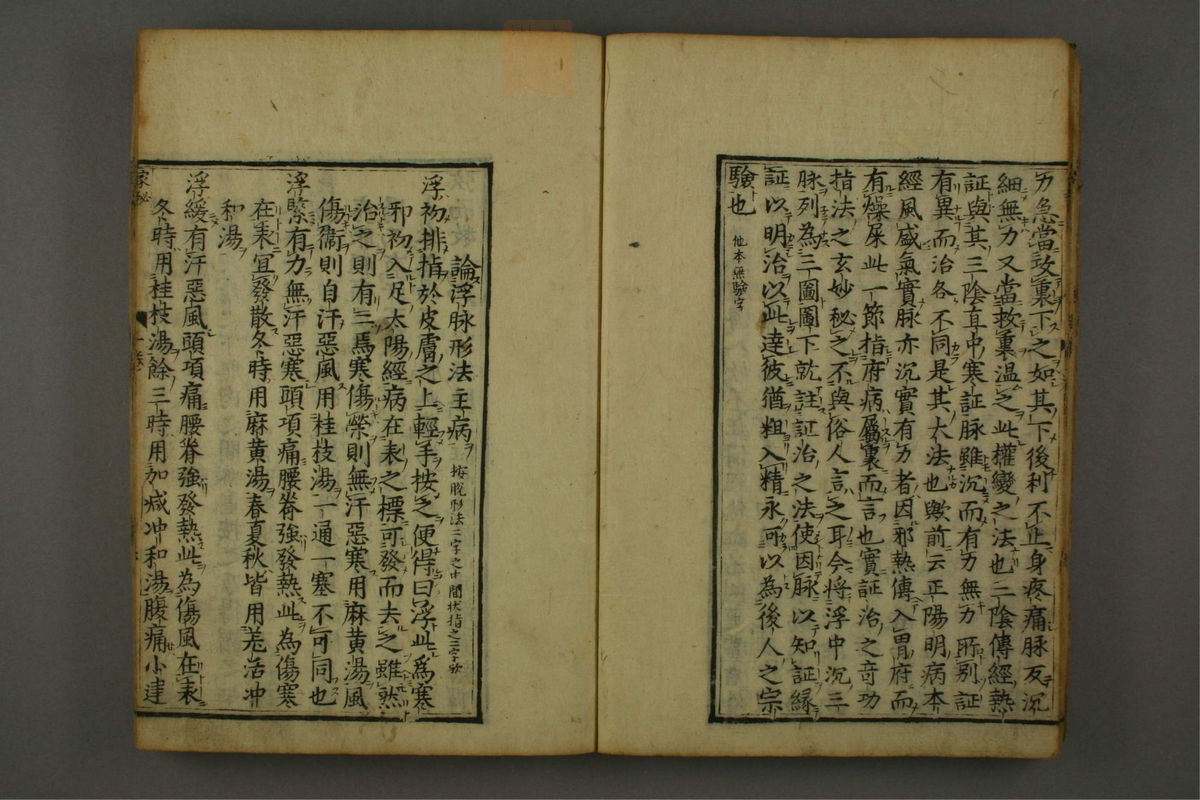 力急當攻裏下之如其下後利不止身疼痛脉反沉
細無力又當救裏温之此權變之法也三陰傳經熱
証與其三陰直中寒証脉雖沉而有力無力所别証
有異而治各不同是其大法也歟前云正陽明病本
經風盛氣實脉亦沉實有力者因邪熱傳入胃府而
有燥屎此一節指府病屬裏而言也實証治之竒功
指法之玄妙秘之不與俗人言之耳今將浮中沉三
脉列為三圖圖下就註証治之法使因脉以知証縁
証以明治以此達彼猶粗入精永可以為後人之宗
驗也 他本無驗字
論浮脉形法主病 按脱形法二字之十 間状指之三字欤
浮初排指於皮膚之上輕手按之便得曰浮此為寒
邪初入足太陽經病在表之標可發而去之雖然
治之則有三焉寒傷榮則無汗惡寒用麻黄湯風
傷衞則自汗惡風用桂枝湯一通一塞不可同也
浮緊有力無汗惡寒頭項痛腰脊強發熱此為傷寒
在表宜發散冬時用麻黄湯春夏秋皆用羌活冲
和湯
浮緩有汗惡風頭項痛腰脊強發熱此為傷風在表
冬時用桂枝湯餘三時用加减冲和湯腹痛小建
家秘